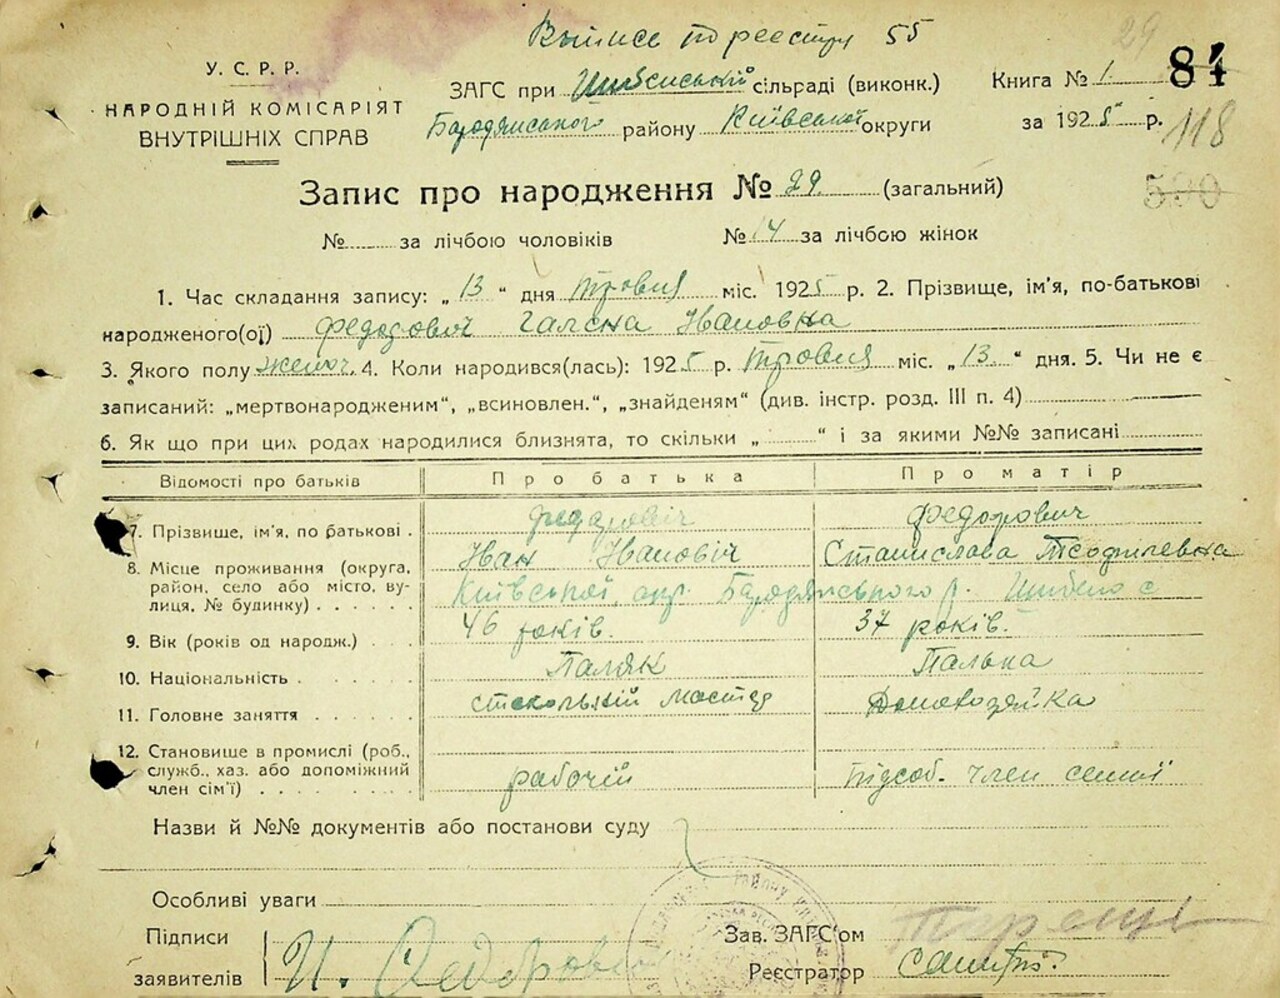 Выпись по реестру 55
29
У. С. Р. Р.
НАРОДНІЙ КОМІСАРІЯТ
ВНУТРІШНІХ СПРАВ
ЗАГС при Шибенський сільраді (виконк.)
Бародянського району Київської округи
Книга № 1. 84
за 1925 р. 118
Запис про народження № 29. (загальний)
590
№ за лічбою чоловіків № 14 за лічбою жінок
1. Час складання запису: „ 13 “ дня травня міс. 1925 р. 2. Прізвище, ім'я, по-батькові
народженого(ої) Федорович Галена Ивановна
3. Якого полу женоч. 4. Коли народився(лась): 1925 р. травня міс. „ 13. “ дня. 5. Чи не є
записаний: „мертвонародженим“, „всиновлен.“, „знайденям“ (див. інстр. розд. III п. 4)
6. Як що при цих родах народилися близнята, то скільки „ “ і за якими №№ записані
Відомості про батьків Про батька Про матір
7. Прізвище, ім'я, по батькові . Федоровіч Федорович
Иван Ивановіч Станислава
8. Місце проживання (округа,
район, село або місто, ву-
лиця, № будинку) . . . . . . Київської окр. Бародянського р. Шибено с
9. Вік (років од народж.) . . . 46 років. 37 років.
10. Національність . . . . . . Паляк Палька
11. Головне заняття . . . . . . стекольний мастер Домохозяйка
12. Становище в промислі (роб.,
служб., хаз. або допоміжний
член сім'ї) . . . . . . . . рабочій підсоб. член семії
Назви й №№ документів або постанови суду
Особливі уваги
Підписи
заявителів И. Федорович
Зав. ЗАГС'ом
Реєстратор